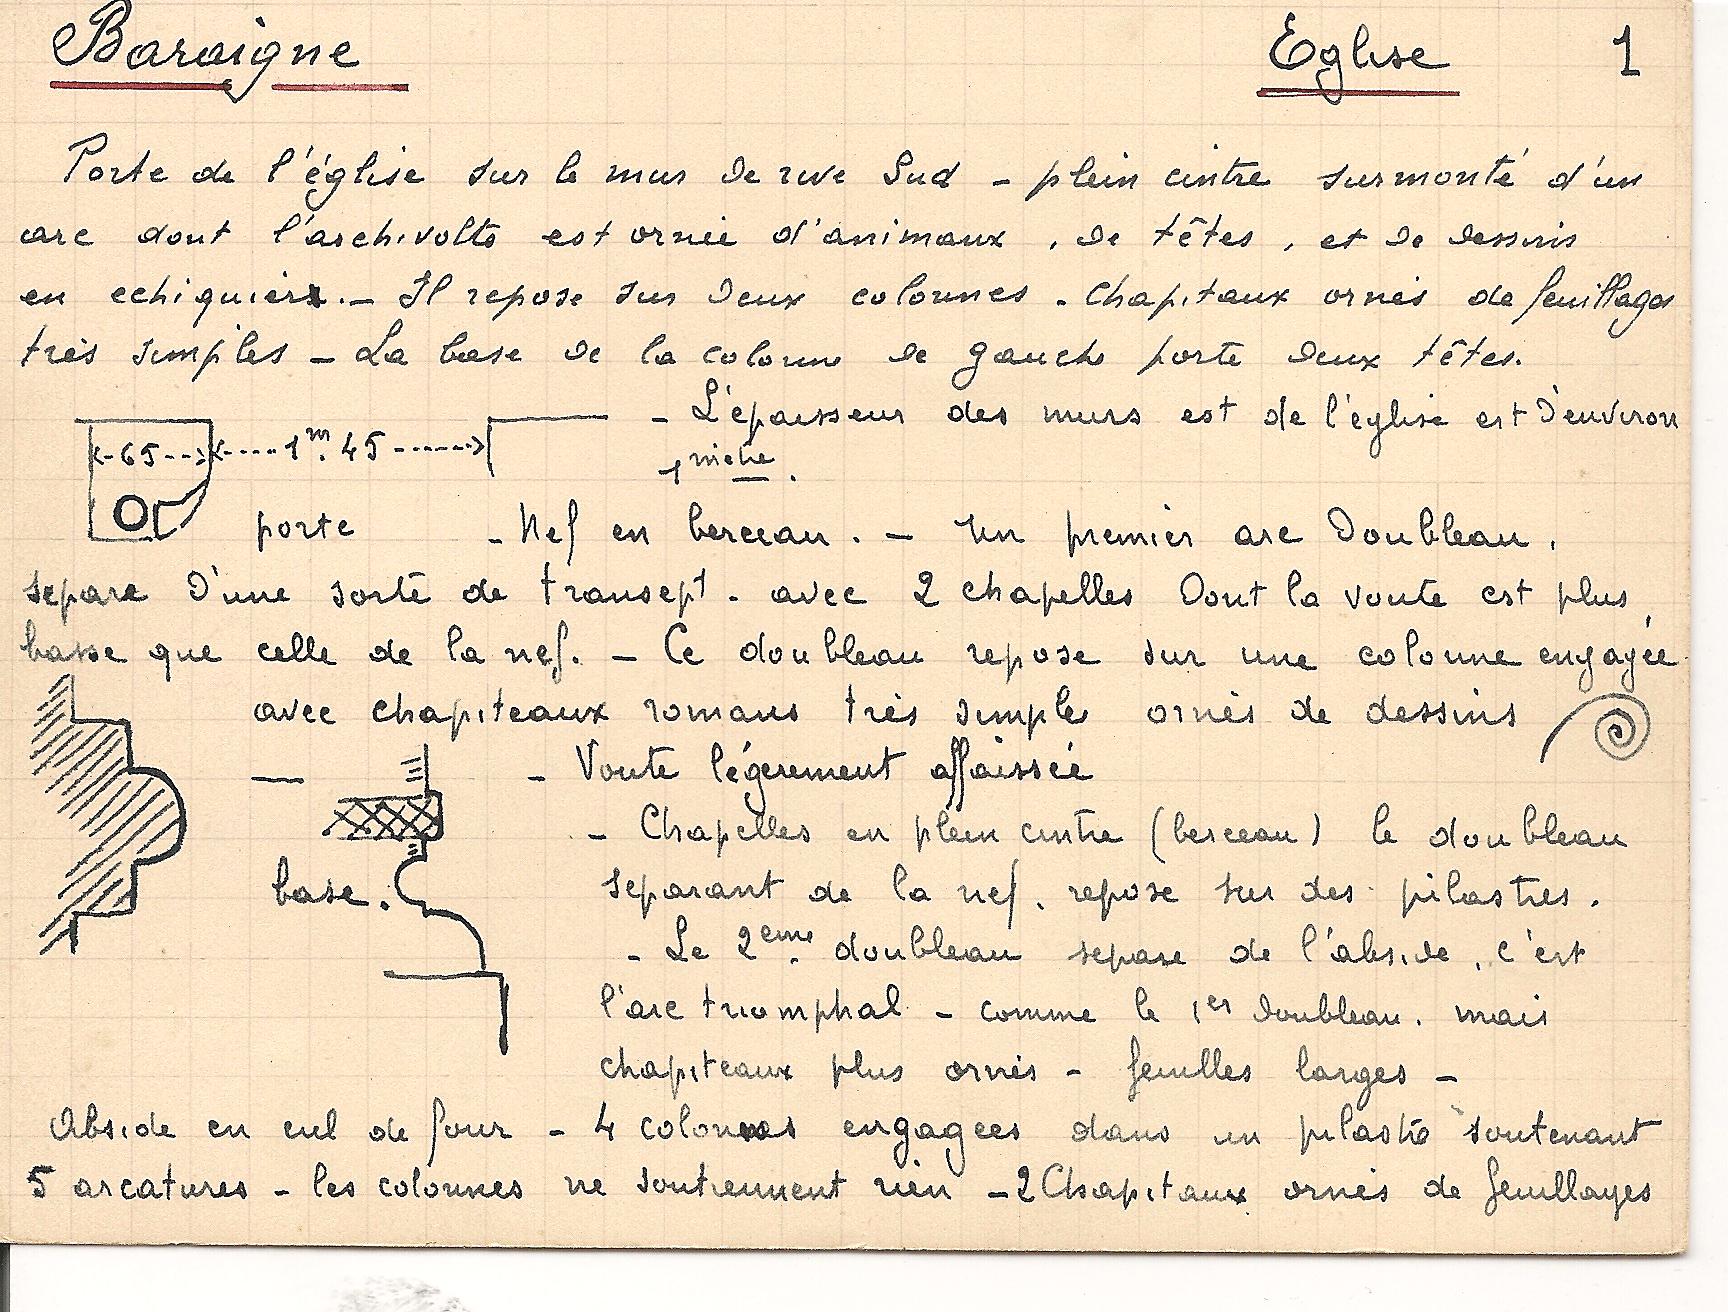 Baraigne Eglise 1
Porte de l'église sur le mur de rive Sud - plein cintre surmonté d'un
arc dont l'archivolte est ornée d'animaux, de têtes, et de dessins
en echiquier. - Il repose sur deux colonnes - Chapitaux ornés de feuillages
très simples - La base de la colonne de gauche porte deux têtes.
- L'épaisseur des murs est de l'église est d'environ
65 1m.45
1
porte - Nef en berceau. - Un premier arc doubleau,
separe d'une sorte de transept - avec 2 chapelles dont la voute est plus
basse que celle de la nef. - Ce doubleau repose sur une colonne engagée
avec chapiteaux romans très simples ornés de dessins
- Voute légerement affaissée
- Chapelles en plein cintre (berceau) le doubleau
base. separant de la nef, repose sur des pilastres.
- Le 2eme doubleau separe de l'abside, c'est
l'arc triomphal - comme le 1er doubleau. mais
chapiteaux plus ornés - feuilles larges -
Abside en cul de four - 4 colonnes engagees dans un pilastre soutenant
5 arcatures - les colonnes ne soutiennent rien - 2 Chapitaux ornés de feuillages